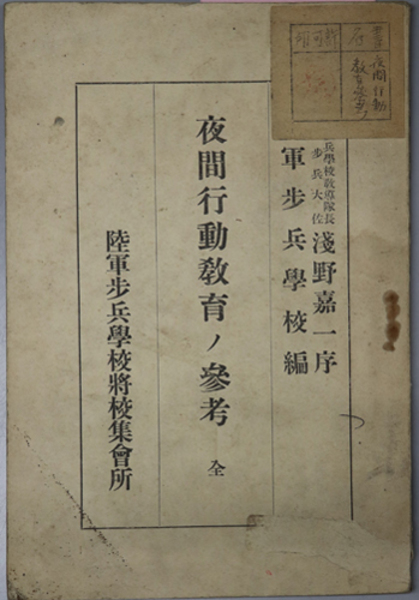 兵學校教導隊長
步兵大佐
淺野嘉一序
軍步兵學校編
夜間行動敎育ノ參考 全
陸軍步兵學校將校集會所
書名
夜間行動